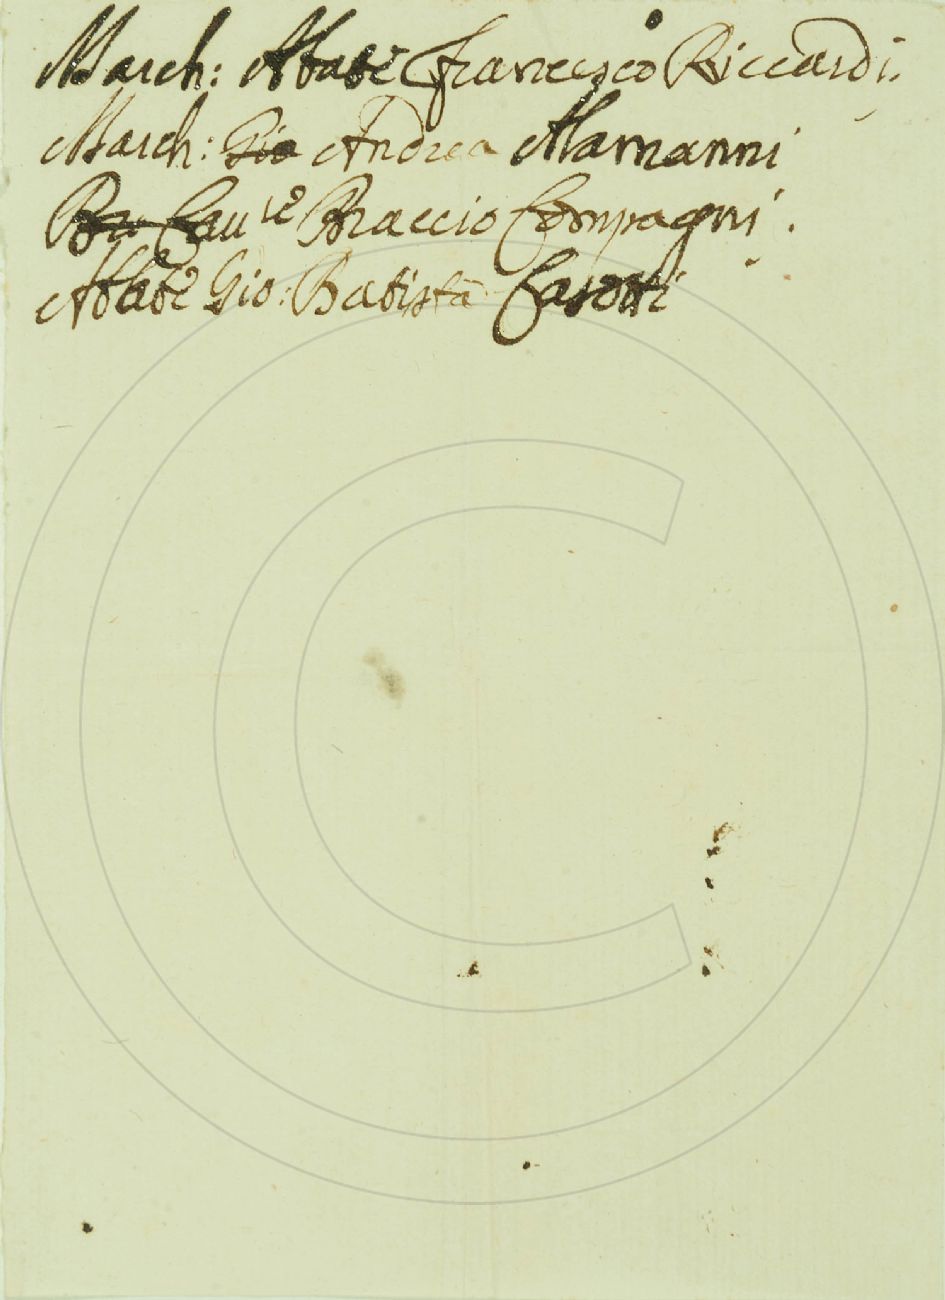 March: Abate Francesco Riccardi.
March: Gio Andrea Alamanni
Br Cau.re Braccio Compagni.
Abate Gio: Batista Casotti